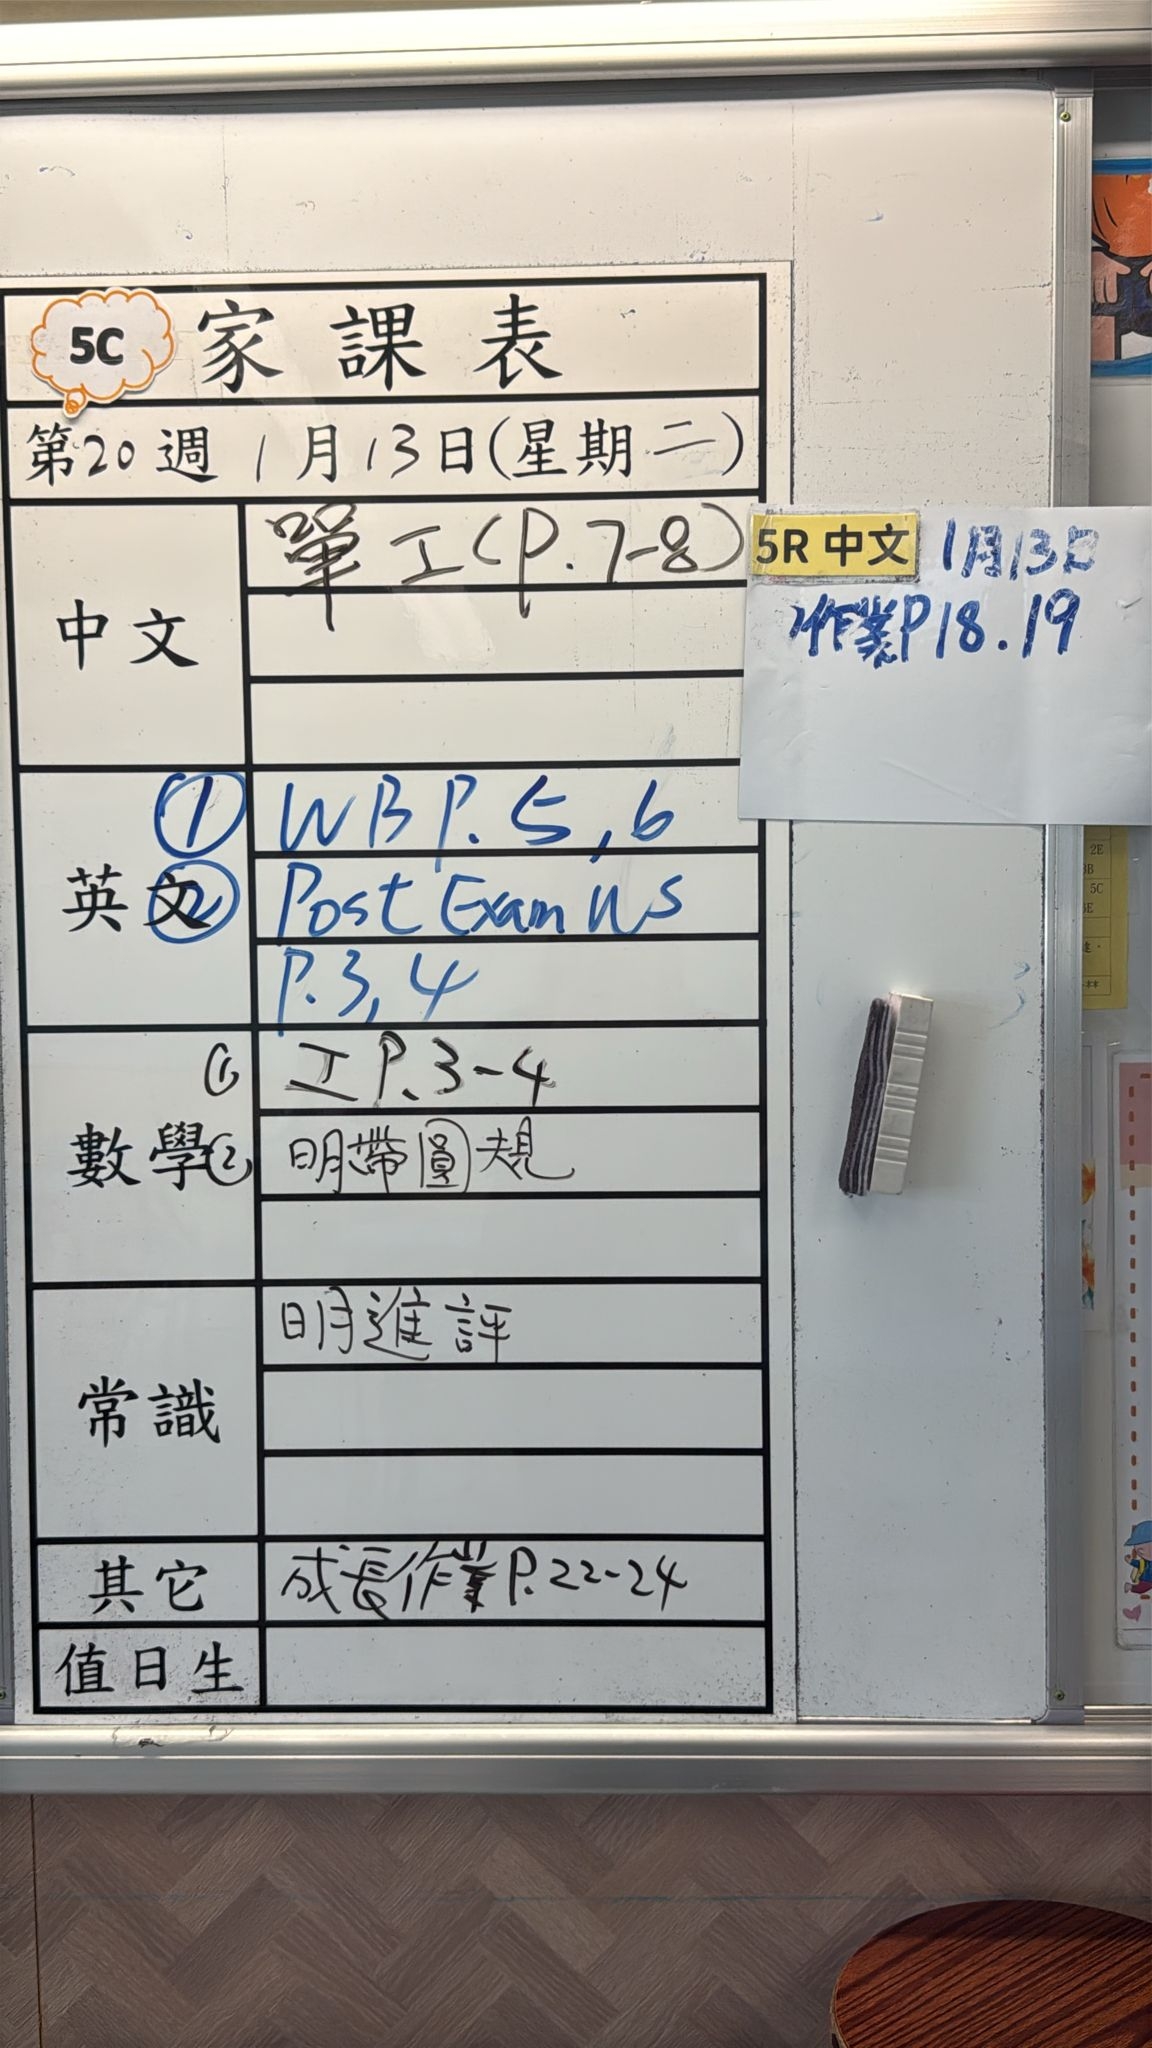 5C 家課表
第20週 1月13日(星期二)
中文
單工(P.7-8)
5R 中文 1月13日
作業P18.19
英文
① WB P.5,6
② Post Exam WS
P.3,4
數學
① 工P.3-4
② 明帶圓規
常識
明進評
其它
成長作業P.22-24
值日生
2E
5C